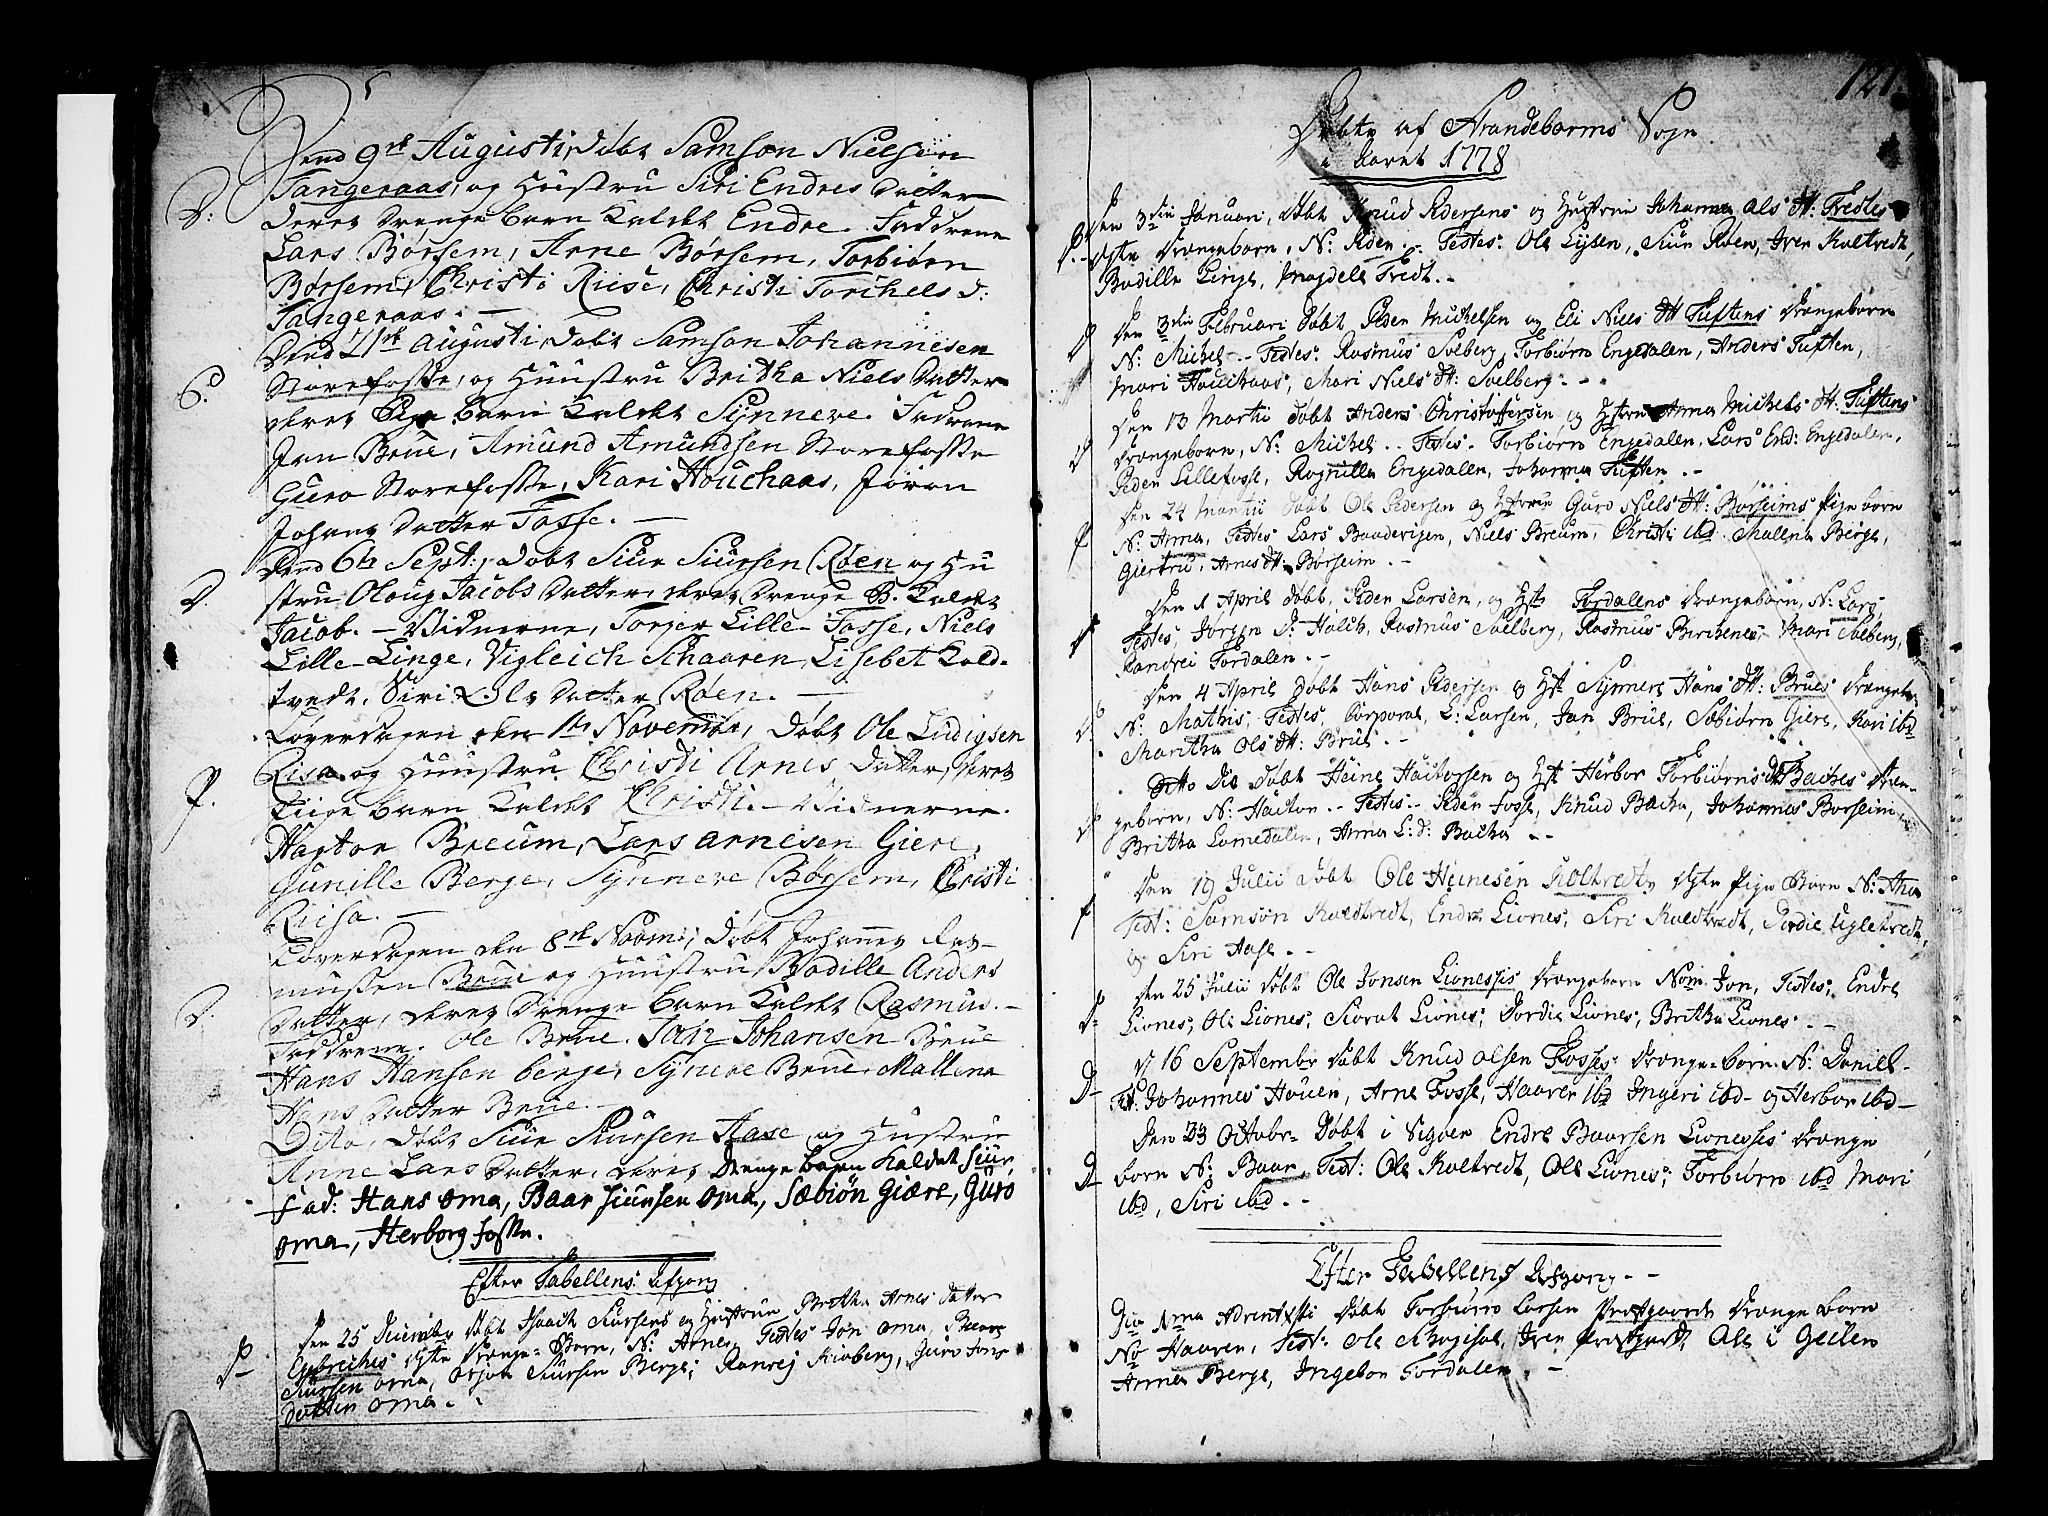 Dend 9de Augusti, Døbt Samson Nielsen
Tangeraas, og Huustru Siri Endres Datter
D: deres Drenge Barn Kaldet Endre. Faddrene
Lars Børsem, Arne Børsem, Torbiørn
Børsem, Christi Riise, Christi Torchels d:
Tangeraas. —
Dend 21de Augusti, Døbt Samson Johannesen
Storefosse, og Huustru Britha Niels Datter
deres Pige Barn Kaldet Synneve. Fadrene
Jan Brue, Amund Amundsen Storefosse
Guro Storefosse, Kari Houchaas, Jøron
Johans Datter Fosse. —
Dend 6te Sept:, Døbt Siur Siursen Røen og Hu
D. stru Oloug Jacobs Datter, deres Drenge B. Kaldet
Jacob. — Vidnerne, Torger Lille-Fosse, Niels
Lille-Linge, Vigleich Schaaren, Lisebet Kold-
tvedt, Siri Ols Datter Røen. —
Løverdagen den 1te Novembr, Døbt Ole Ludigsen
Risa og Huustru Christi Arnes Datter, deres
P. Piige Barn Kaldet Christi. — Vidnerne.
Hagtor Breum, Lars arnesen Giere,
Gunille Berge, Synneve Børsem, Christi
Riisa. —
Løverdagen den 8de Novm:, Døbt Johannes Ras-
musen Brue og Huustru Bodille Anders
D. Datter, deres Drenge Barn Kaldet Rasmus. —
Faddrene. Ole Brue. Johansen Brue
Hans Hansen berge, Synneve Brue, Mallena
Hans Datter Brue. —
Dito, Døbt Siur Siursen Aase og Hustru
Anne Lars Datter, deres Drenge barn Kaldet Siur,
Fad: Hans oma, Baar siursen oma, Sæbiøn Giære, Guro
oma, Herborg fosse.
Efter Tabellens Afgang
Den 25 Decembr Døbt Siursens og Hustrue Britha Arnes Datter
D— ægte Drenge-Barn, N: Arne, Testes Jon oma, Baar
Siursen oma, Siursen Berge, Ranvej Guro Jons
datter oma.
121.
Døbte af Strandebarms Sogn
i Aaret 1778
Den 3die Januari, Døbt Knud Pedersens og Hustrue Johanna Ols Dt: Fredtes
D.- ægte Drængebarn, N: Peder. Testes: Ole Lysen, Siur Røen, Iver Koltvedt,
Bodilla Linge, Magdele Fredt. -
Den 3die Februari Døbt Peder Michelsen og Eli Niels Dt Tuftens Drængebarn
D N: Michel. - Testes: Rasmus Solberg, Torbiørn Engedalen, Anders Tuften,
Mari Houchaas, Mari Niels Dt: Solberg. -
Den 13 Martii Døbt Anders Christoffersen og Hstrue Anna Michels Dt: Tuftens
D Drængebarn, N: Michel. - Testes. Torbiørn Engedalen, Lars End: Engedalen,
Peder Lillefosse, Rognilla Engedalen, Johanna Tuften. -
Den 24 Martii Døbt Ole Pedersen og Hstrue Guro Niels Dt: Borseims Pigebarn
P N: Anna, Testes Lars Niels Breum, Christi ibd Mallena Berge,
Giertru Arnes Dt: Børseim. -
Den 1 April Døbt, Peder Larsen, og Hst Tordalens Drængebarn, N: Lars,
D Testes, Jørgen d: Holch, Rasmus Solberg, Rasmus Birchenes, Mari Solberg,
Randvei Tordalen. -
Den 4 April Døbt Hans Pedersen & Hst Synnevs Hans Dt: Brues Drængeb.
D. N: Mathis, Testes, Corporal L: Larsen, Jan Brue, Sæbiørn Giere, Kari ibd
Maritha Ols Dt: Brue. -
Dito Die Døbt Heine Hactorsen og Hst Herbor Torbiørns Dt Baches Dren-
D gebarn, N: Hactor. - Testes. - Peder Fosse, Knud Bacha, Johannes Borseim
Britha Lomedalen, Anna L: d: Bacha - -
Den 19 Julii Døbt Ole Heinesen Koltvedt, ægte Pige Barn N: Ana
P Test: Samson Koldtvedt, Endre Lionnes, Siri Koldtvedt, Giordie Ugletvedt,
og Siri Aase. -
Den 25 Julii Døbt Ole Jonsen Lionessis Drængebarn Nom: Jon, Testes, Endre
D- Liones, Ole Liones, Siovat Liones, Giordie Liones, Britha Liones. -
D 16 Septembr Døbt Knud Olsen Fosses Drænge-barn. N: Daniel.
D- Test: Johannes Houen, Arne Fosse, Haaver ibd Ingeri ibd- og Herbor ibd-
Den 23 Octobr- Døbt i Vigøer Endre Baarsen Lionessis Drænge
D- barn N: Baar, Test: Ole Koltvedt, Ole Liones, Torbiørn ibd Mari
ibd, Siri ibd. -
Efter Tabellens Afgang. -
Dom 1ma Adventssti Døbt Torbiørn Larsen Præstgaards Drænge barn
No Haaver, Test: Ole Iver Præstgaardt, Ole i Geilen
Anna Berge, Ingebor Tordalen. -